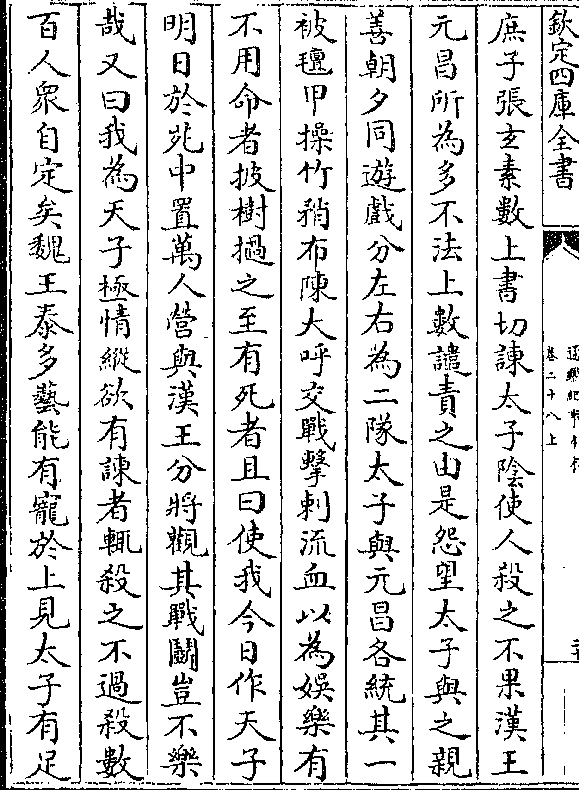 欽定四庫全書
通鑑紀事本末
卷二十八上
庶子張玄素數上書切諫太子陰使人殺之不果漢王
元昌所為多不法上數譴責之由是怨望太子與之親
善朝夕同遊戲分左右為二隊太子與元昌各統其一
被氊甲操竹矟布陳大呼交戰擊刺流血以為娛樂有
不用命者披樹撾之至有死者且曰使我今日作天子
明日於苑中置萬人營與漢王分將觀其戰鬬豈不樂
哉又曰我為天子極情縱欲有諫者輒殺之不過殺數
百人衆自定矣魏王泰多藝能有寵於上見太子有足